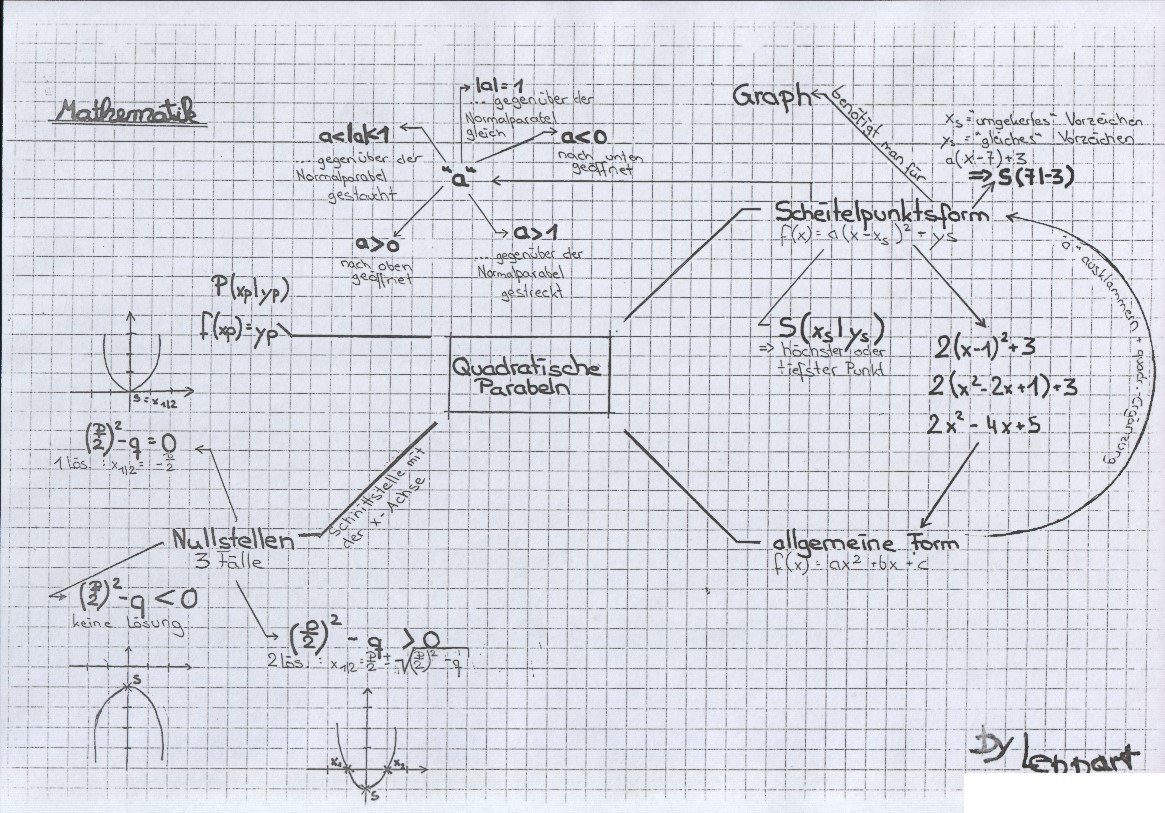 Mathematik
|a|= 1
... gegenüber der
Normalparabel
gleich
a<|a|<1
... gegenüber der
Normalparabel
gestaucht
a<0
nach unten
geöffnet
"a"
a>0
nach oben
geöffnet
a>1
... gegenüber der
Normalparabel
gestreckt
Graph
benötigt man für
xs = "umgekertes" Vorzeichen
ys = "gleiches" Vorzeichen
a(x-7)+3
=> S(7|-3)
Scheitelpunktsform
f(x) = a(x-xs)² + ys
"a" ausklammern + quadr. Ergänzung
S(xs|ys)
=> höchster oder
tiefster Punkt
2(x-1)²+3
2(x²-2x+1)+3
2x² - 4x+5
P(xp|yp)
f(xp)=yp
Quadratische
Parabeln
S = x1/2
(p/2)² - q = 0
1 lös. : x1/2 = -p/2
Schnittstelle mit
der x-Achse
Nullstellen
3 Fälle
(p/2)² - q < 0
keine Lösung
S
(p/2)² - q > 0
2 lös. : x1/2 = p/2 ± √(p/2)² - q
x1 x2
S
allgemeine Form
f(x) = ax² + bx + c
By Lennart